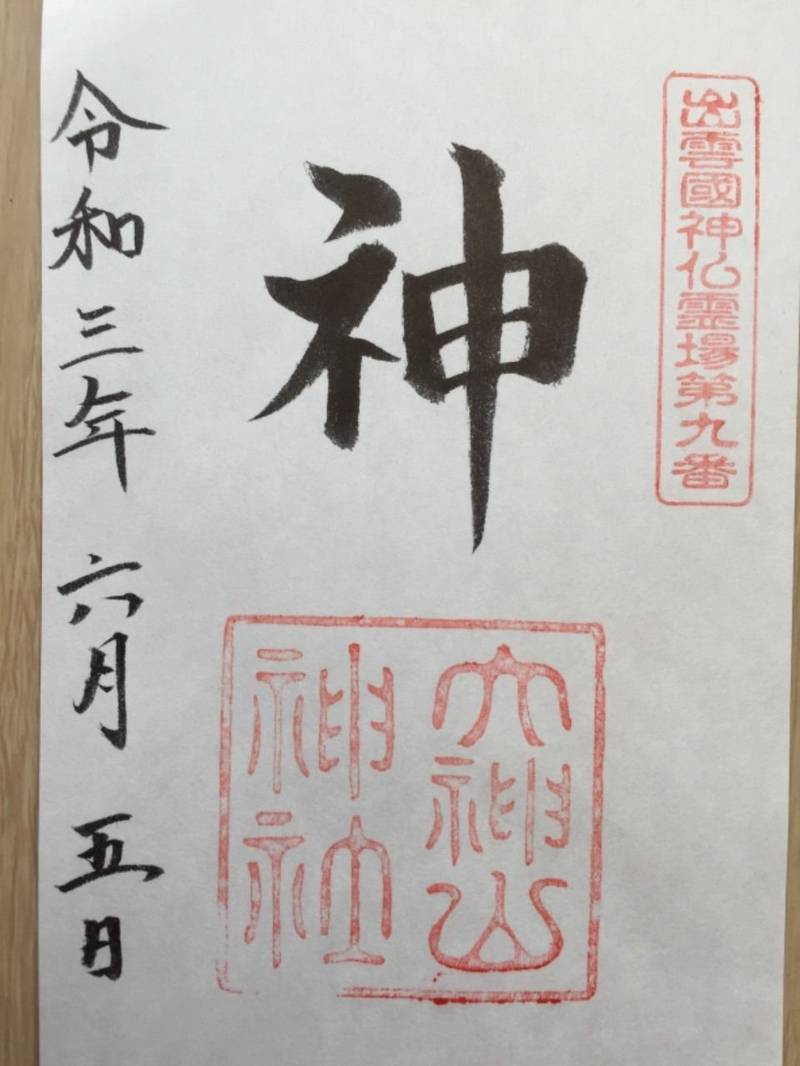 出雲國神仏霊場第九番
神
大神山
神社
令和三年 六月 五日